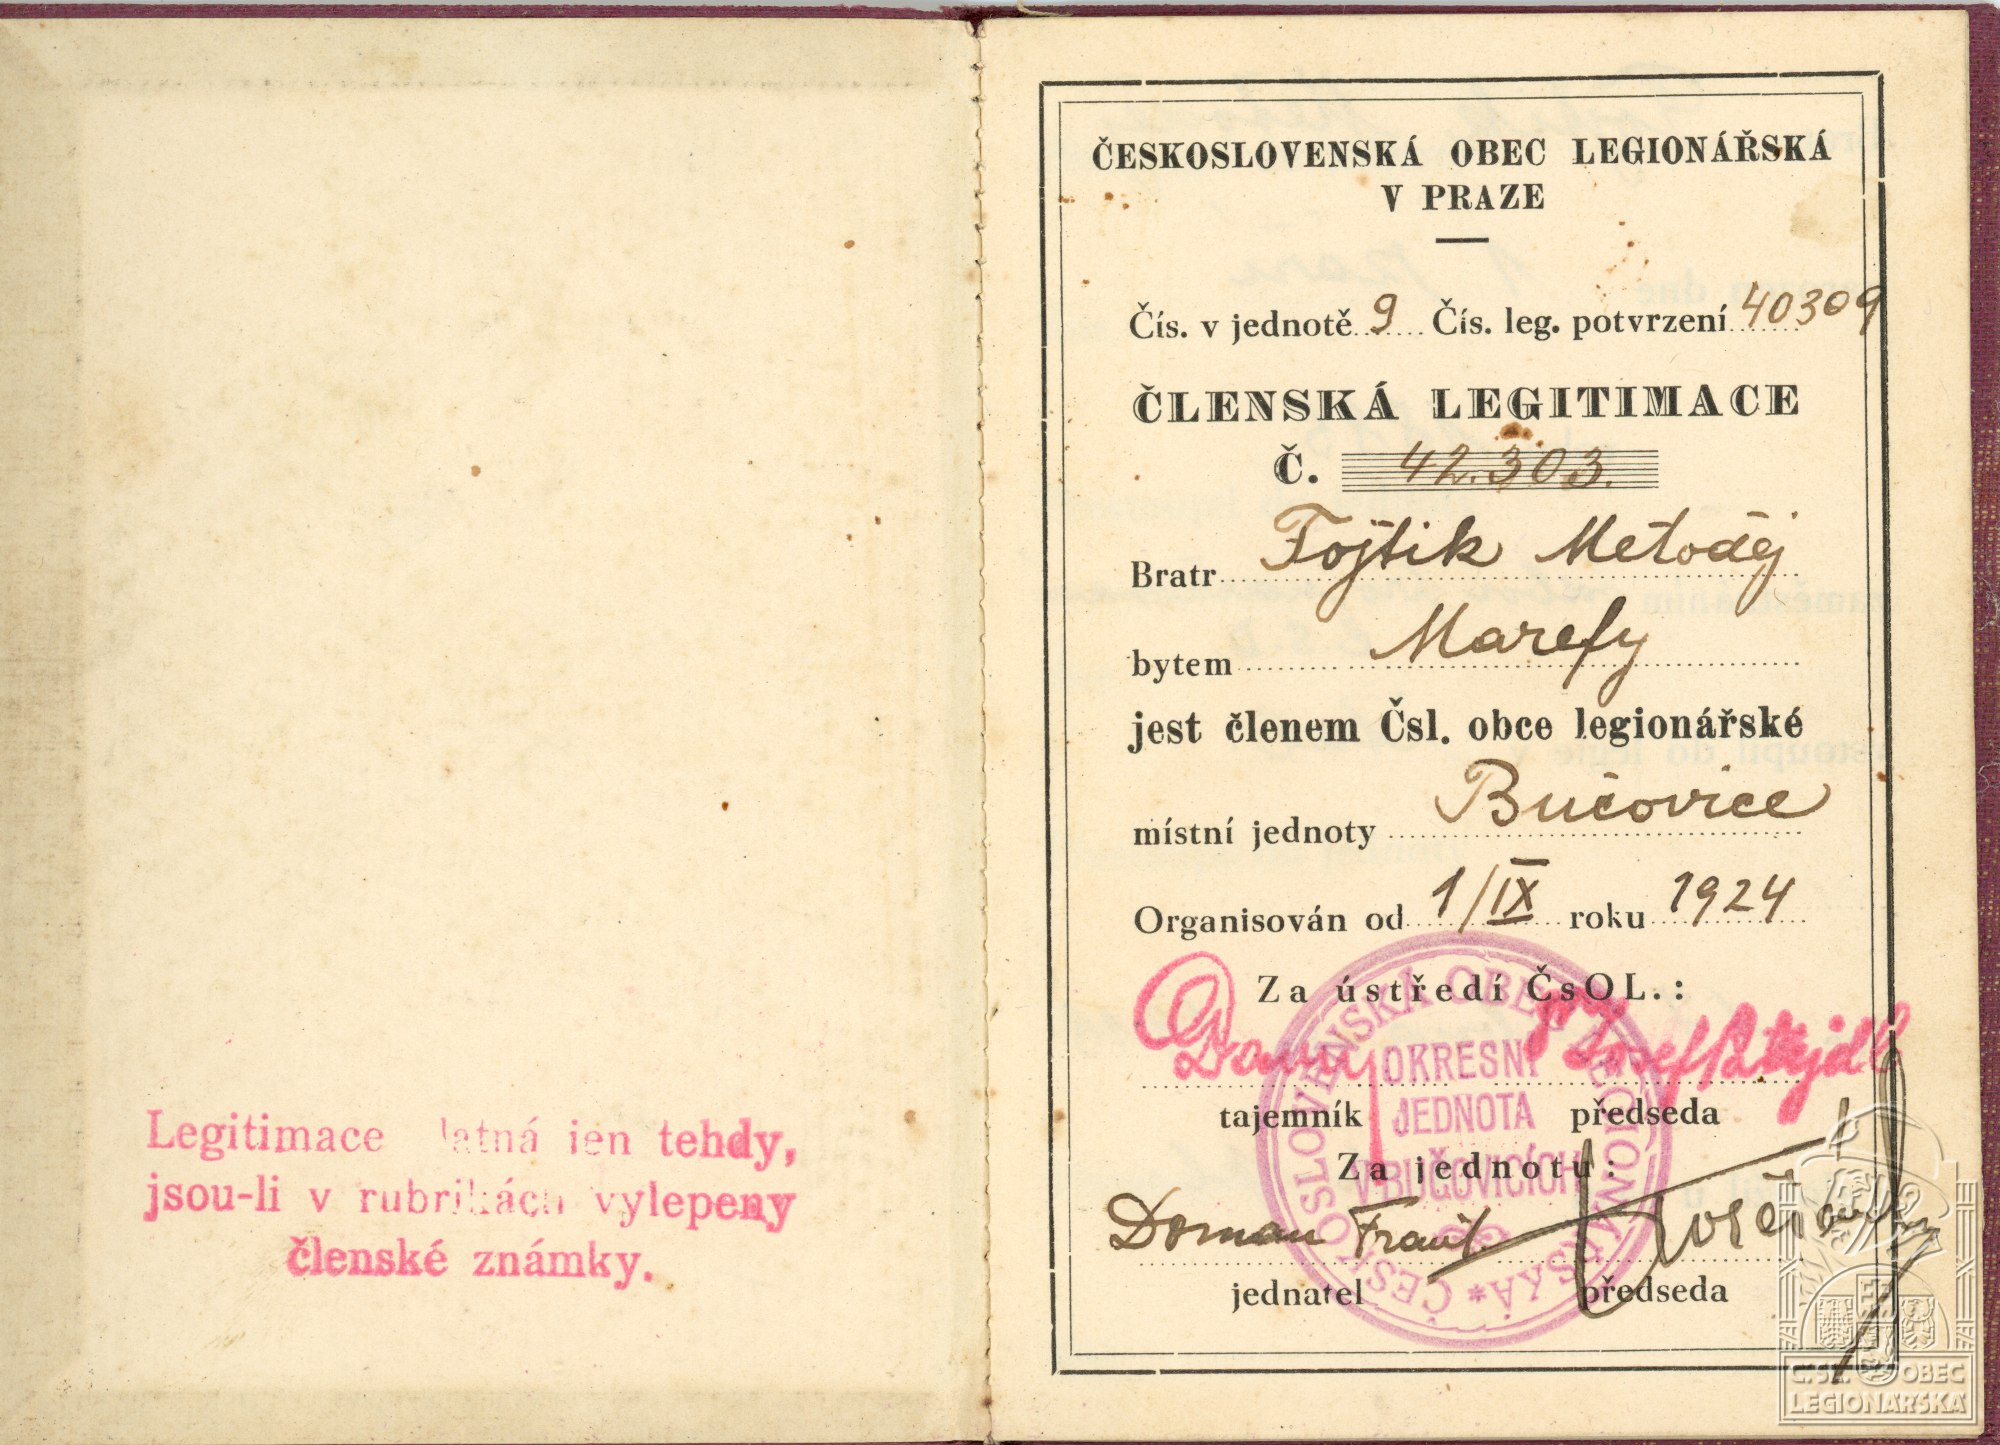 Legitimace latná jen tehdy,
jsou-li v rubrikách vylepeny
členské známky.
ČESKOSLOVENSKÁ OBEC LEGIONÁŘSKÁ
V PRAZE
Čís. v jednotě 9 Čís. leg. potvrzení 40309
ČLENSKÁ LEGITIMACE
Č. 42.303.
Bratr Fojtik Metoděj
bytem Marefy
jest členem Čsl. obce legionářské
místní jednoty Bučovice
Organisován od 1/IX roku 1924
Za ústředí ČsOL.:
Josef Patejdl
tajemník předseda
Za jednotu:
Doman Frant.
jednatel předseda
ČESKOSLOVENSKÁ OBEC LEGIONÁŘSKÁ *
OKRESNÍ
JEDNOTA
V BUČOVICÍCH
Č. SL. OBEC
LEGIONÁŘSKÁ